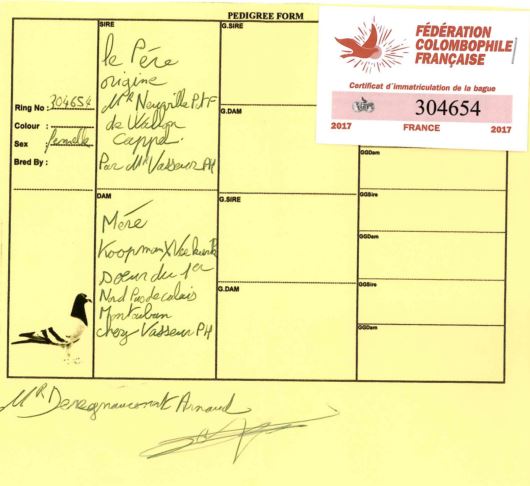 PEDIGREE FORM
SIRE
le Père
origine
Mr Neuville P.t F
de Wallon
Cappe.
Par Mr Vasseur PH
G.SIRE
G.DAM
FÉDÉRATION
COLOMBOPHILE
FRANÇAISE
Certificat d'immatriculation de la bague
304654
2017 FRANCE 2017
Ring No : 304654
Colour :
Sex : femelle
Bred By :
GGDam
DAM
Mère
Koopman X
Soeur du 1er
Nord Pas de calais
Montauban
chez Vasseur PH
G.SIRE
G.DAM
GGSire
GGDam
GGSire
GGDam
Mr Deregnaucourt Arnaud